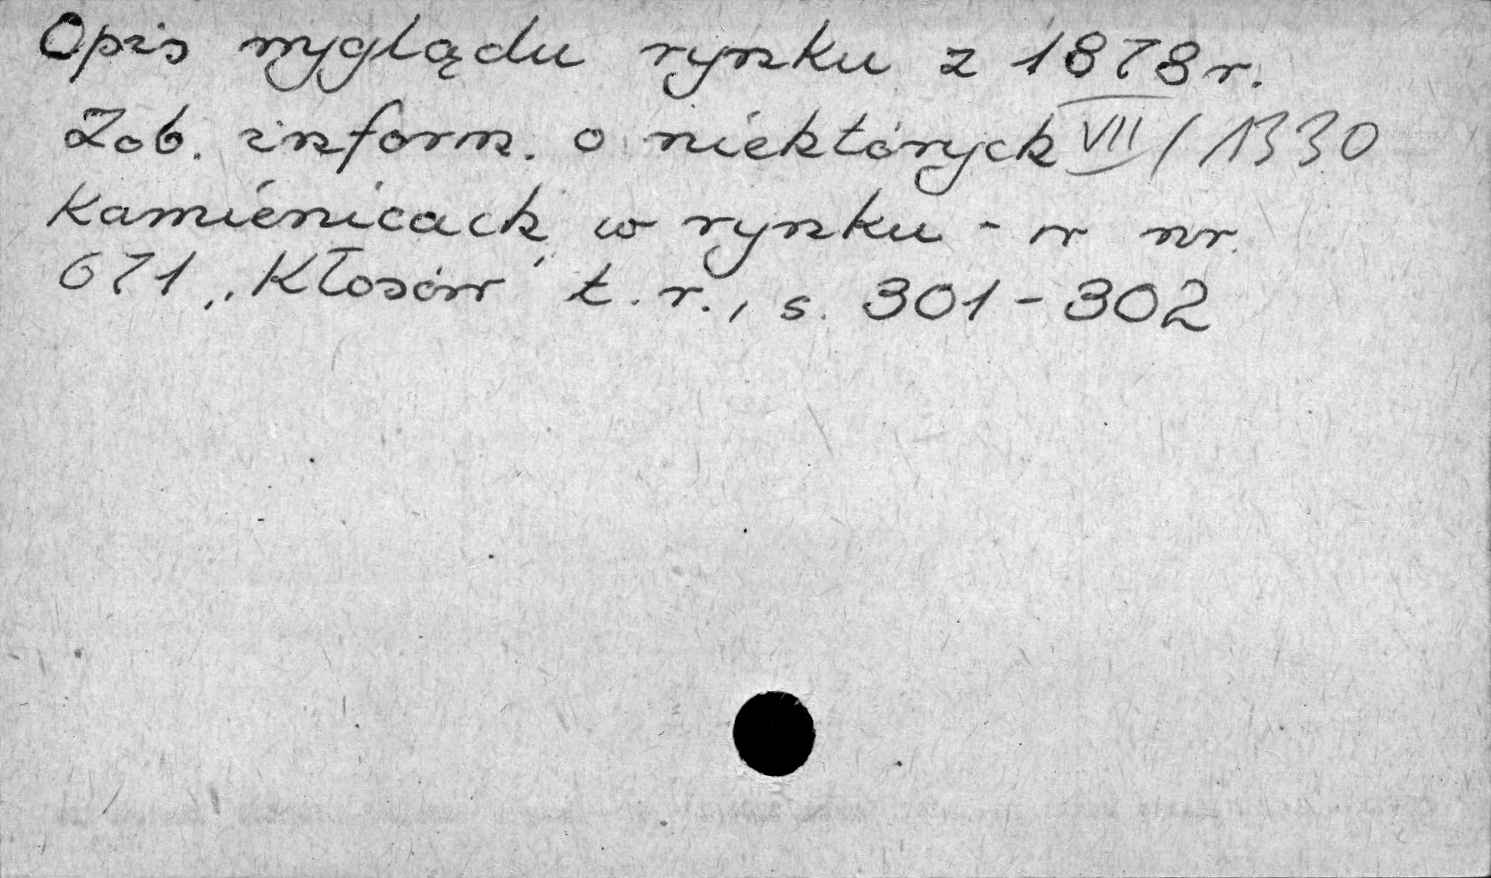 Opis wyglądu rynku z 1878 r.
Zob. inform. o niektórych VII/1330
Kamienicach w rynku - w nr
671 „Kłosów" t.r., s. 301-302